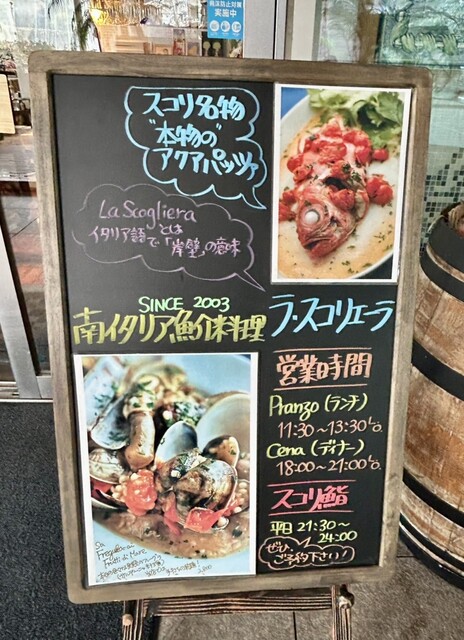 実施中
スコリ名物
"本物の"
アクアパッツァ
La Scogliera
とは
イタリア語
で「岸壁」の意味
SINCE 2003
南イタリア魚介料理 ラ・スコリエーラ
営業時間
Pranzo (ランチ)
11:30〜13:30 L.O.
Cena (ディナー)
18:00〜21:00 L.O.
スコリ鮨
平日 21:30〜
24:00
ぜひ
ご予約下さい!
Frutti di Mare